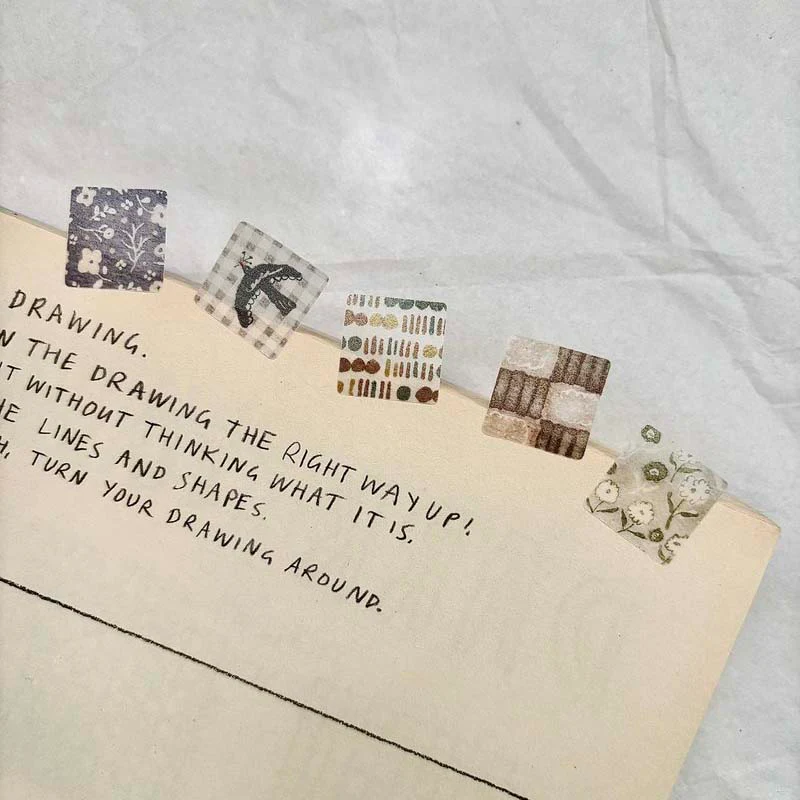 DRAWING.
THE DRAWING THE RIGHT WAY UP!
IT WITHOUT THINKING WHAT IT IS.
LINES AND SHAPES.
TURN YOUR DRAWING AROUND.